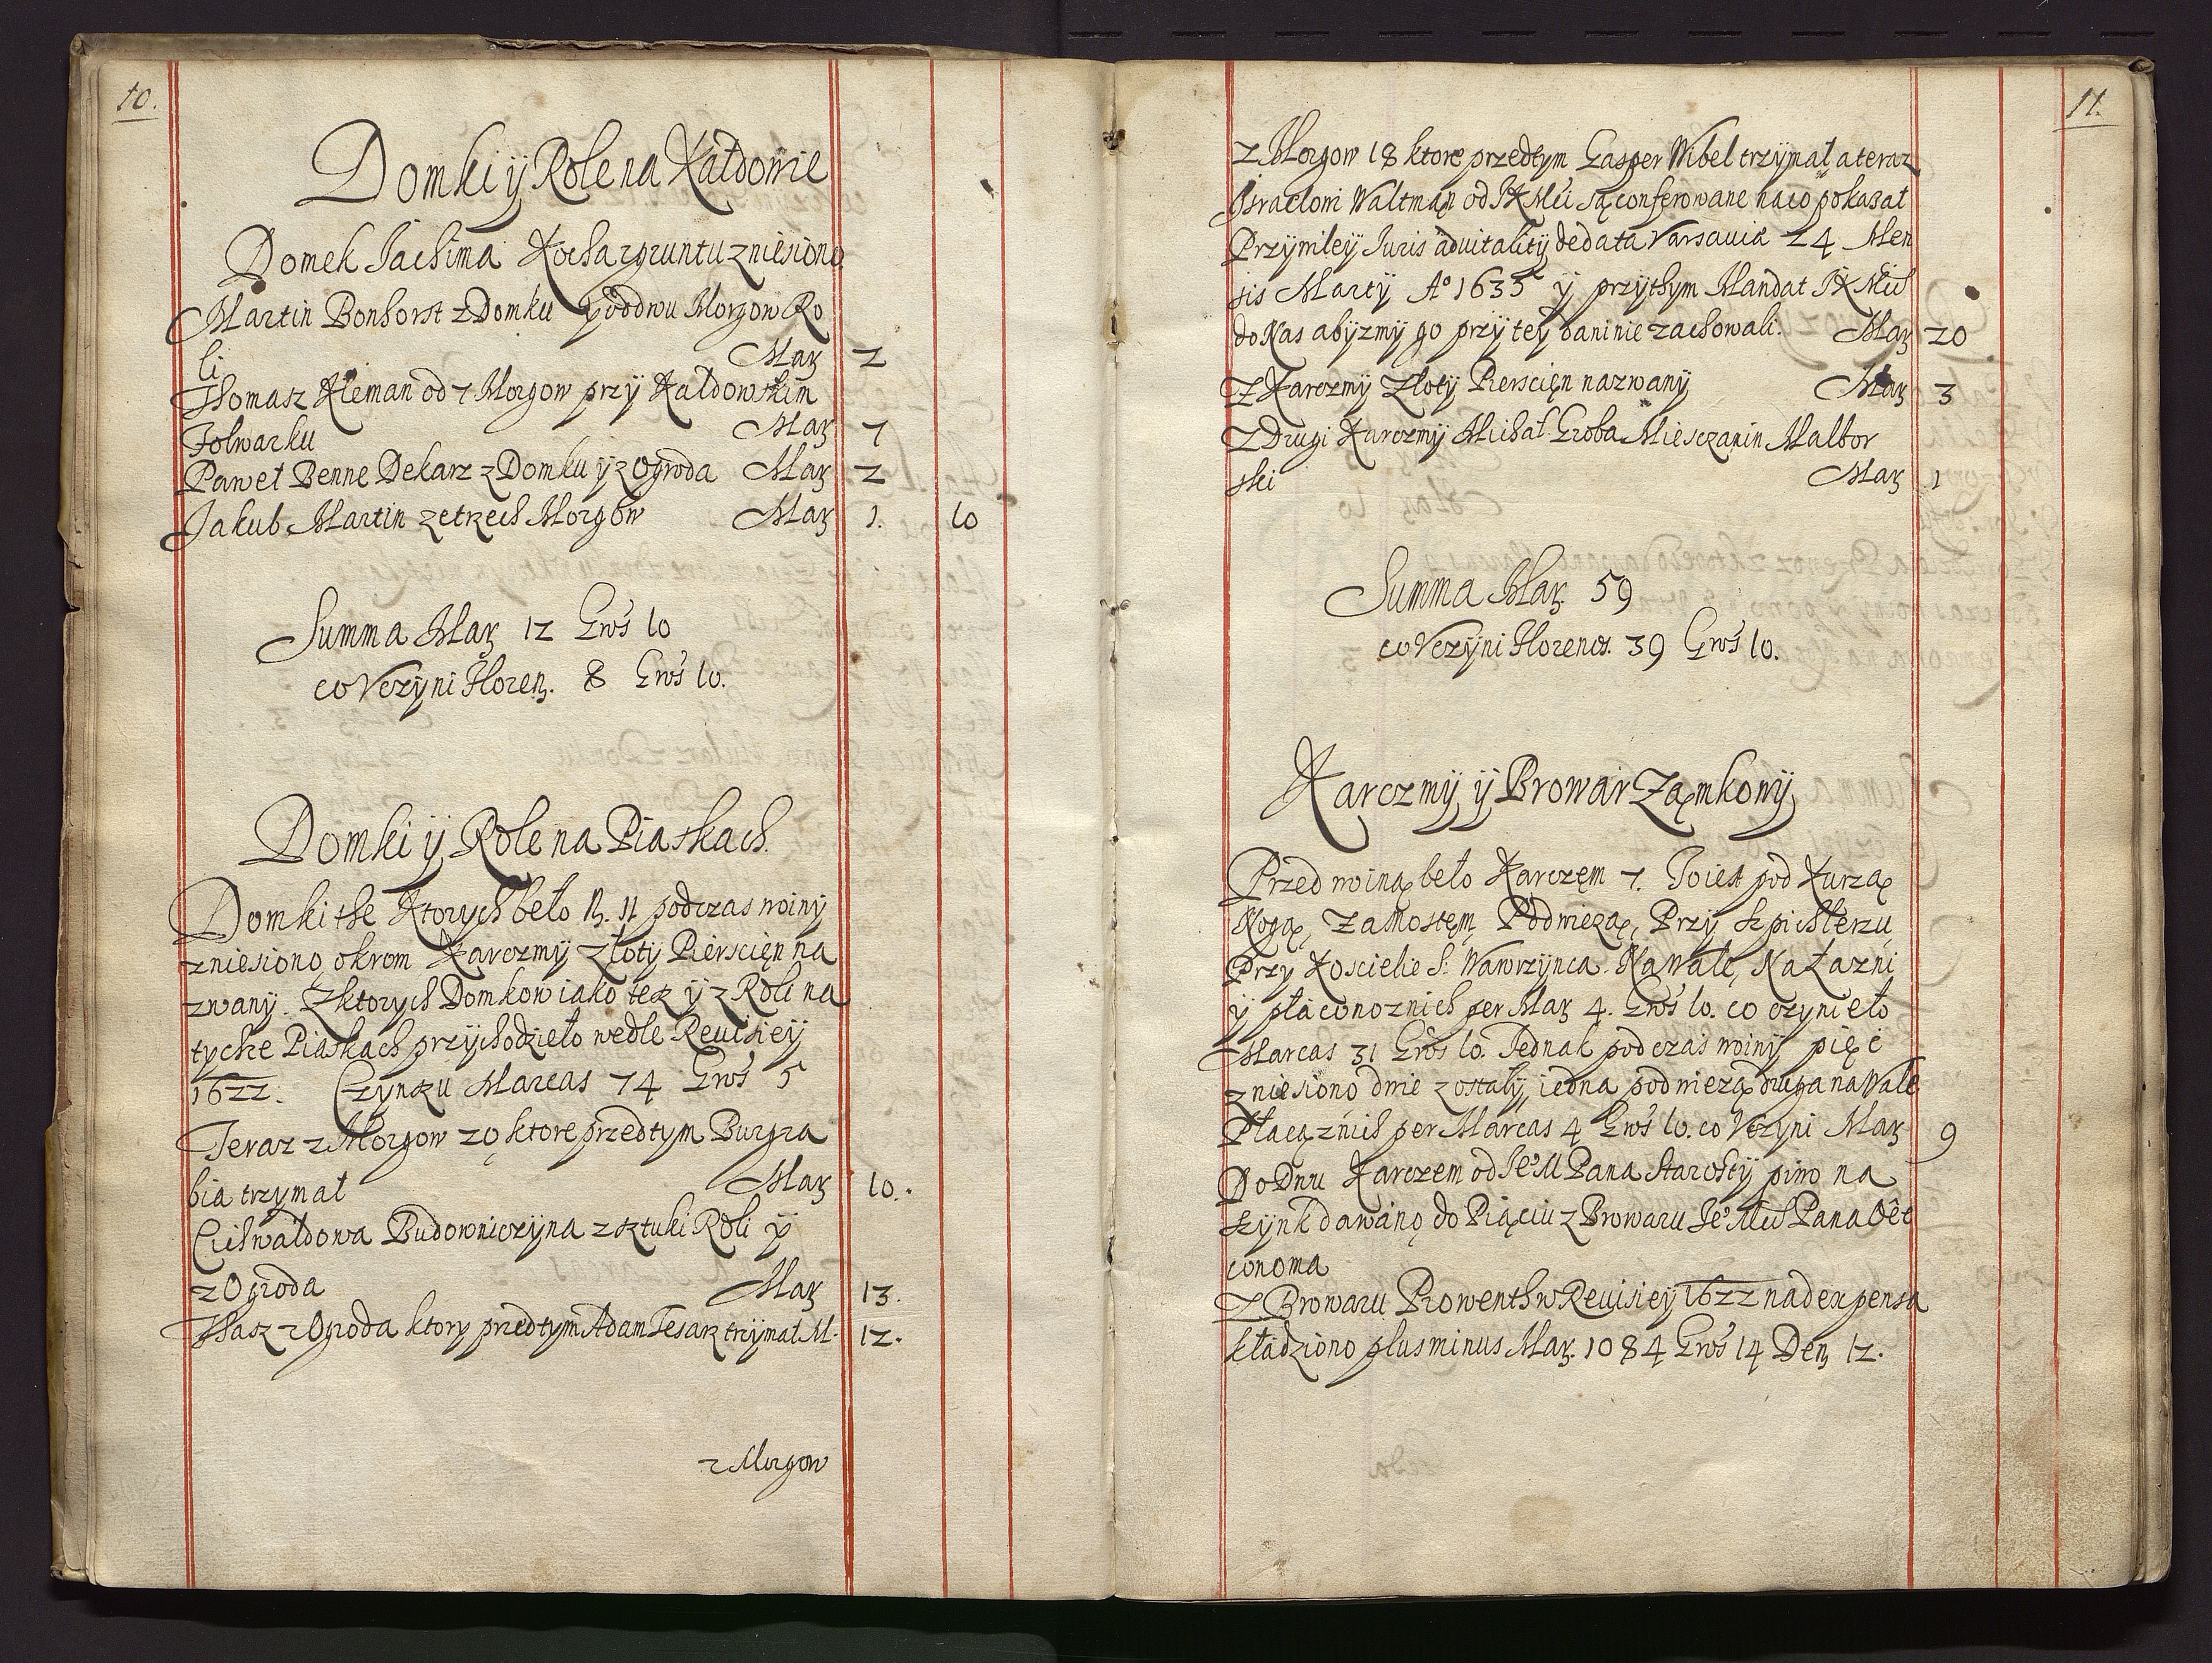 10.
Domki ÿ Role na Kałdowie
Domek Jachima Kocha z gruntu zniesiono
Martin Bonhorst z Domku ÿ od dwu Morgow Ro
li Marz 2
Thomasz Kleman od 7 Morgow przÿ Kałdowskim
Folwarku Marz 7
Paweł Benne Dekarz z Domku ÿ z Ogroda Marz 2
Jakub Martin ze trzech Morgow Marz 1. 10
Summa Marz 12 Gros 10
co Vczÿni Floren. 8 Gros 10.
Domki ÿ Role na Piaskach.
Domki the Ktorych beło N. 11 podczas woinÿ
zniesiono, okrom Karczmÿ Złotÿ Pierscięn na
zwanÿ. Z ktorych Domkow iako tesz ÿ z Roli na
tychże Piaskach przÿchodzieło wedle Reuisieÿ
1622. Czynszu Marcas 74 Gros 5
Teraz z Morgow 20 ktore przedtym Burgra
bia trzymał Marz 10.
Cichwałdowa Budowniczÿna z sztuki Roli ÿ
z Ogroda Marz 13.
Thasz z Ogroda ktory przedtym Adam Tesarz trzÿmał M. 12.
z Morgow
11.
Z Morgow 18 ktore przedtym Gasper Wibel trzÿmał a teraz
Israelowi Waltman od JKMci są conferowane na co pokazał
Przÿwileÿ Iuris aduitalitÿ de data Varsauiæ 24 Men
sis Martÿ A° 1635 ÿ przÿthym Mandat JKMci
do Nas abÿzmÿ go przÿ teÿ daninie zachowali. Marz 20
Z Karczmÿ Złotÿ Pierscięn nazwanÿ Marz 3
Z Drugi Karczmÿ Michał Groba Miesczanin Malbor
ski Marz 1
Summa Marz. 59
co Vczÿni Florenos. 39 Gros 10.
Karczmÿ ÿ Browar Zamkowÿ
Przed woiną beło Karczem 7. To iest pod Kurzą
Nogą, Za Mostem, Pod wieżą, Przy Szpichlerzu
Przy Kosciele S: Wawrzÿnca. Na Wale, Na Łazni
ÿ płacono z nich per Marz 4. Gros 10. co czynieło
Marcas 31 Gros 10. Jednak podczas woinÿ pięć
zniesiono dwie zostałÿ, iedna pod wieżą druga na Wale
Płacą z nich per Marcas 4 Gros 10. co Vczÿni Marz 9
Do Dwu Karczem od Je°M Pana Starostÿ piwo na
szÿnk dawano do Piąciu z Browaru Je°Mci Pana Oec
conoma
Z Browaru Prowenthu w Reuisieÿ 1622 nad expensa
kładziono plus minus Marz. 1084 Gros 14 Den. 12.